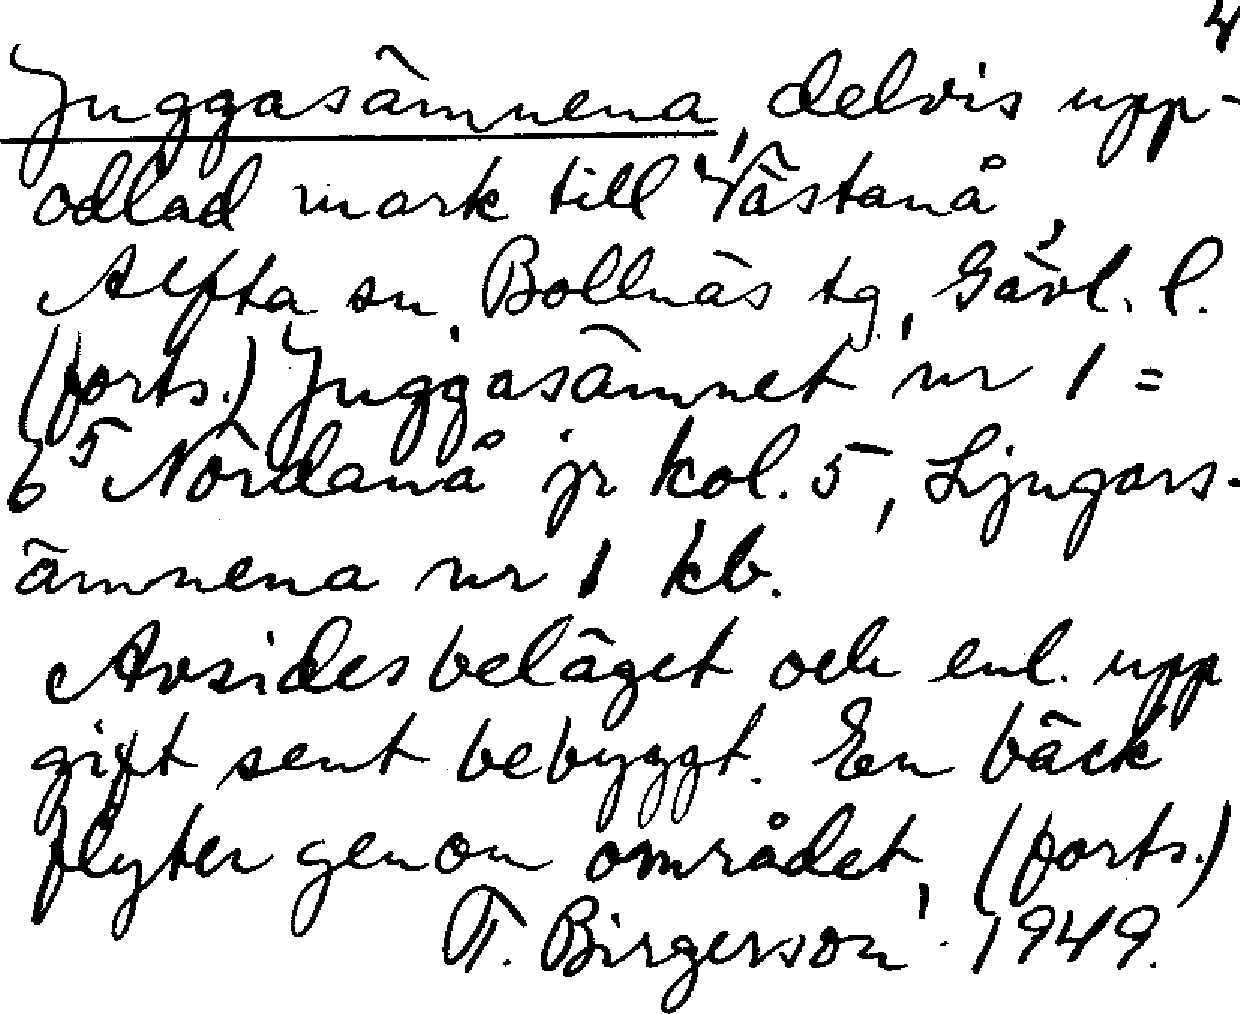 4
Juggasämnena, delvis upp-
odlad mark till Västanå,
Alfta sn, Bollnäs tg, Gävl. l.
(forts.) Juggasämnet nr 1 =
6⁵ Nordanå jr kol. 5, Ljugars-
ämnena nr 1 kb.
Avsides beläget och enl. upp
gift sent bebyggt. En bäck
flyter genom området, (forts.)
T. Birgerson 1949.